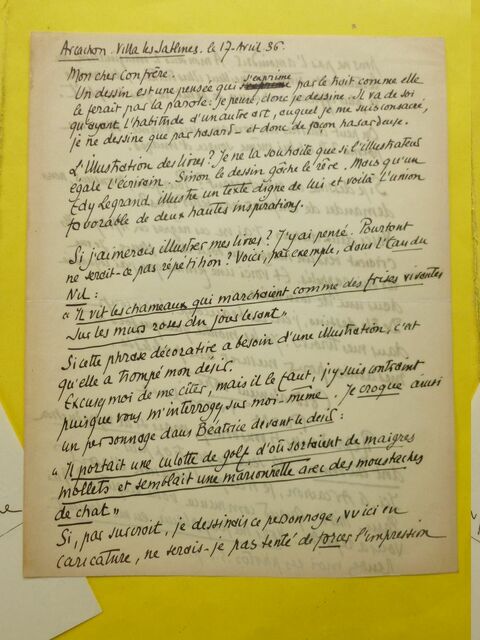 Arcachon. Villa les Sablines. le 17 Avril 36.
Mon cher Confrère.
Un dessin est une pensée qui s'exprime par le trait comme elle
le ferait par la parole: je pense, donc je dessine. Il va de soi
qu'ayant l'habitude d'un autre art, auquel je me suis consacré,
je ne dessine que par hasard — et donc de façon hasardeuse.
L'illustration des livres? Je ne la souhaite que si l'illustrateur
égale l'écrivain. Sinon le dessin gâche le rêve. Mais qu'un
Edy Legrand illustre un texte digne de lui et voilà l'union
favorable de deux hautes inspirations.
Si j'aimerais illustrer mes livres? J'y ai pensé. Pourtant
ne serait-ce pas répétition? Voici, par exemple, dans l'Eau du
Nil:
"Il vit les chameaux qui marchaient comme des frises vivantes
sur les murs roses du jour levant"
Si cette phrase décorative a besoin d'une illustration, c'est
qu'elle a trompé mon désir.
Excusez moi de me citer, mais il le faut, j'y suis contraint
puisque vous m'interrogez sur moi-même. Je croque ainsi
un personnage dans Béatrice devant le désir:
"Il portait une culotte de golf, d'où sortaient de maigres
mollets et semblait une marionnette avec des moustaches
de chat"
Si, par surcroit, je dessinais ce personnage, vu ici en
caricature, ne serais-je pas tenté de forcer l'impression